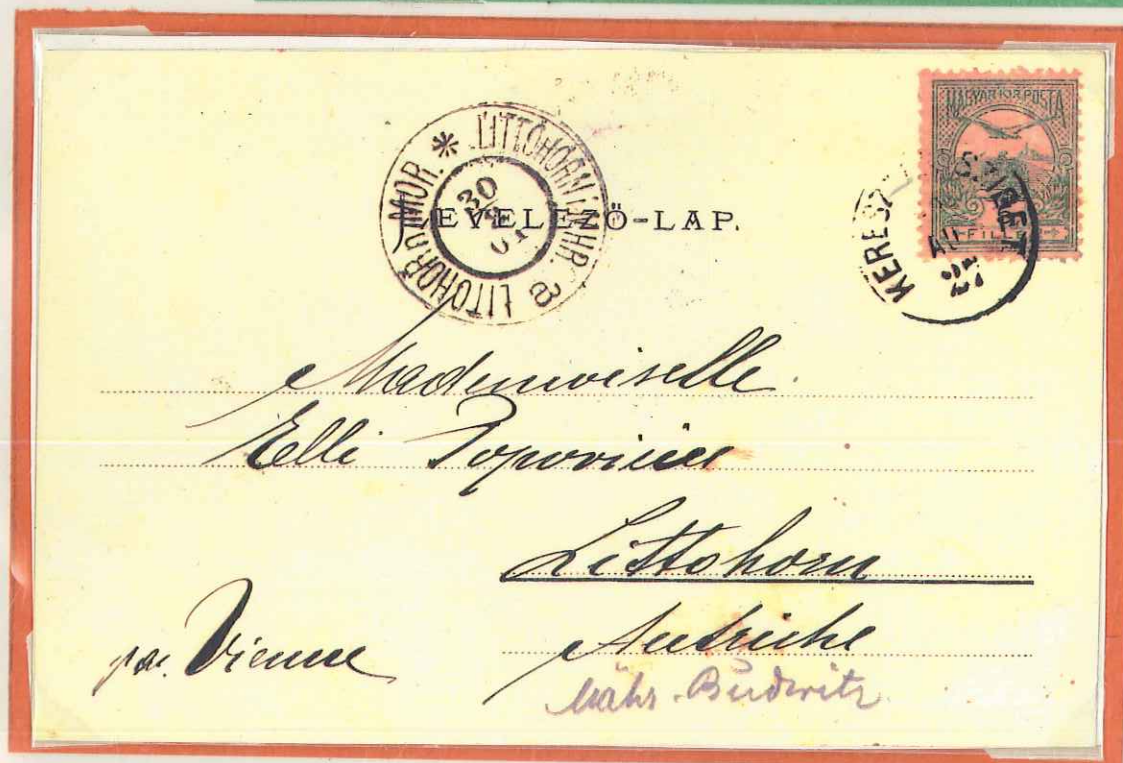 MAGYAR KIR. POSTA
FILLÉR
LEVELEZŐ-LAP.
LITTOHORN MÄHR. LITOHOŘ MOR.
30
KERESZ SZIGET
AU
27
Mademoiselle
Elli Popovicer
Littohorn
Autriche
par Vienne
Mähr. Budwitz